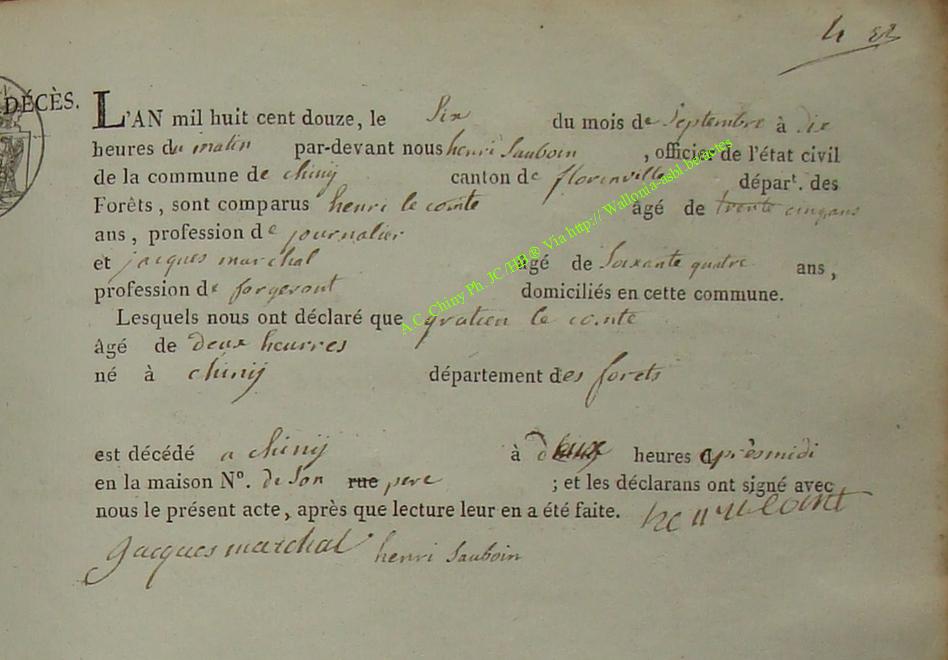 DÉCÈS.
L'AN mil huit cent douze, le Six du mois de Septembre à dix
heures du matin par-devant nous henri Sauboin , officier de l'état civil
de la commune de chinij canton de florinville départ. des
Forêts, sont comparus henri le conte âgé de trente cinq ans
ans, profession de journalier
et jacques marchal âgé de Soixante quatre ans,
profession de forgeront domiciliés en cette commune.
Lesquels nous ont déclaré que gratien le conte
âgé de deux heurres
né à chinij département des forets
est décédé a chinij à deux heures aprèsmidi
en la maison N°. de Son rue pere ; et les déclarans ont signé avec
nous le présent acte, après que lecture leur en a été faite.
jacques marchal henri Sauboin
A.C. Chiny Ph. JC /HB® Via http:// Wallonia-asbl.be/actes